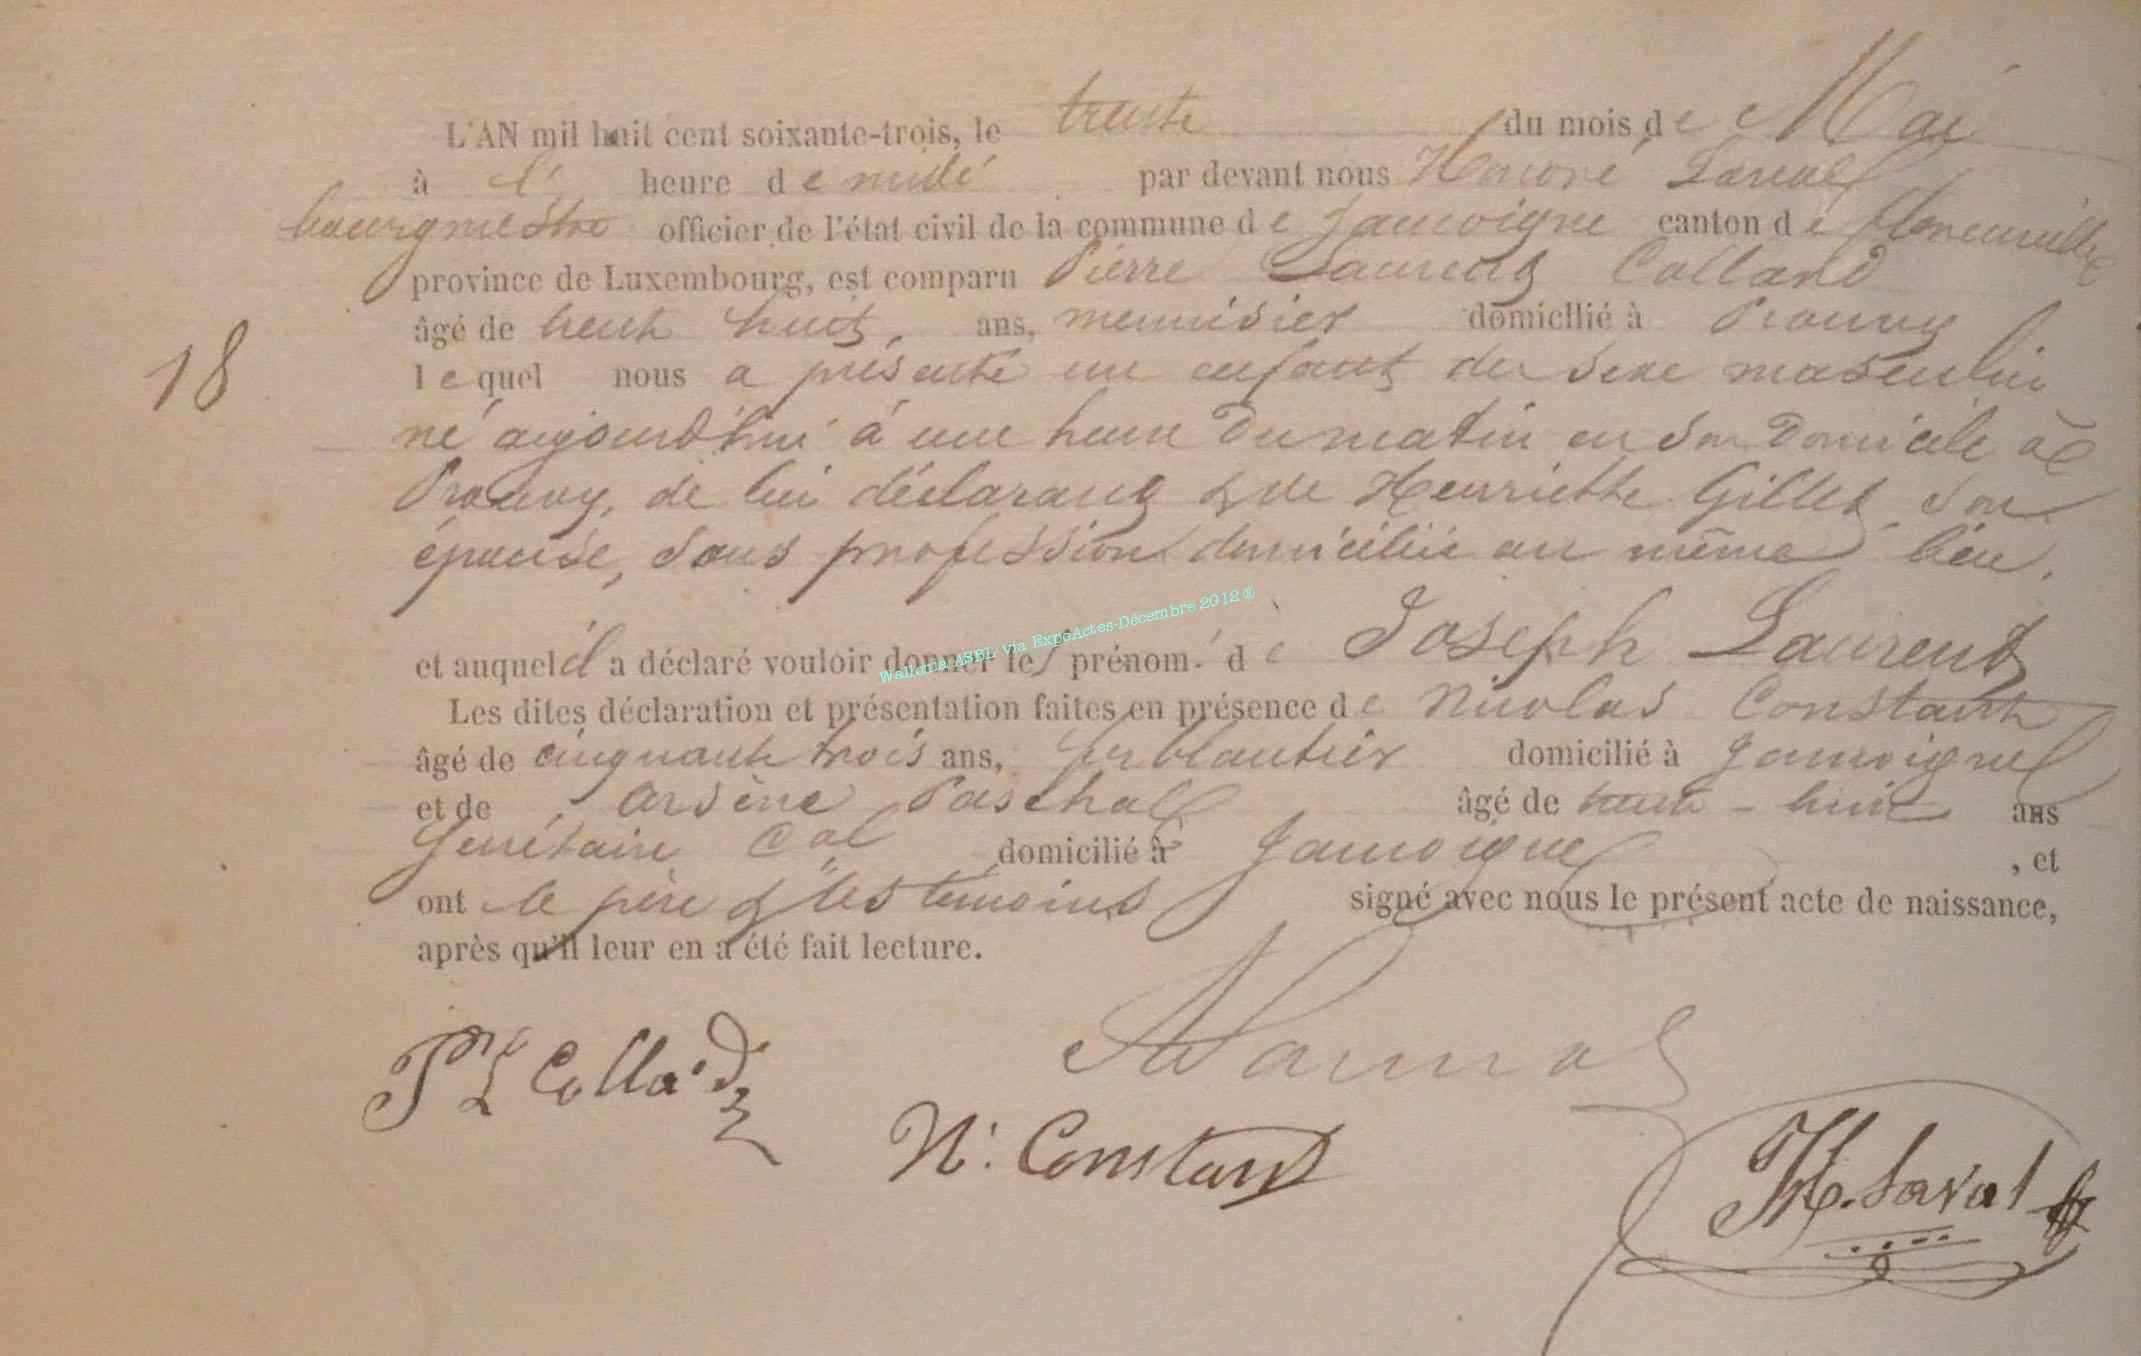 L'AN mil huit cent soixante-trois, le trente du mois de Mai
à l' heure de midi par devant nous Honoré Laval
bourgmestre officier de l'état civil de la commune de Jamoigne canton de florenville
province de Luxembourg, est comparu Pierre Laurent Collard
âgé de trente huit ans, menuisier domicilié à Prouvy
18
lequel nous a présenté un enfant du sexe masculin
né aujourd'hui à une heure du matin en son domicile à
Prouvy, de lui déclarant & de Henriette Gillet son
épouse, sans profession domiciliée au même lieu.
et auquel il a déclaré vouloir donner les prénom de Joseph Laurent
Wallonia ASBL via ExpoActes-Décembre 2012 ®
Les dites déclaration et présentation faites en présence de Nicolas Constant
âgé de cinquante trois ans, ferblantier domicilié à Jamoigne
et de Arsène Paschal âgé de trente-huit ans
Secrétaire Cal domicilié à Jamoigne, et
ont le père & les témoins signé avec nous le présent acte de naissance,
après qu'il leur en a été fait lecture.
P L Collard
N. Constant
H. Laval